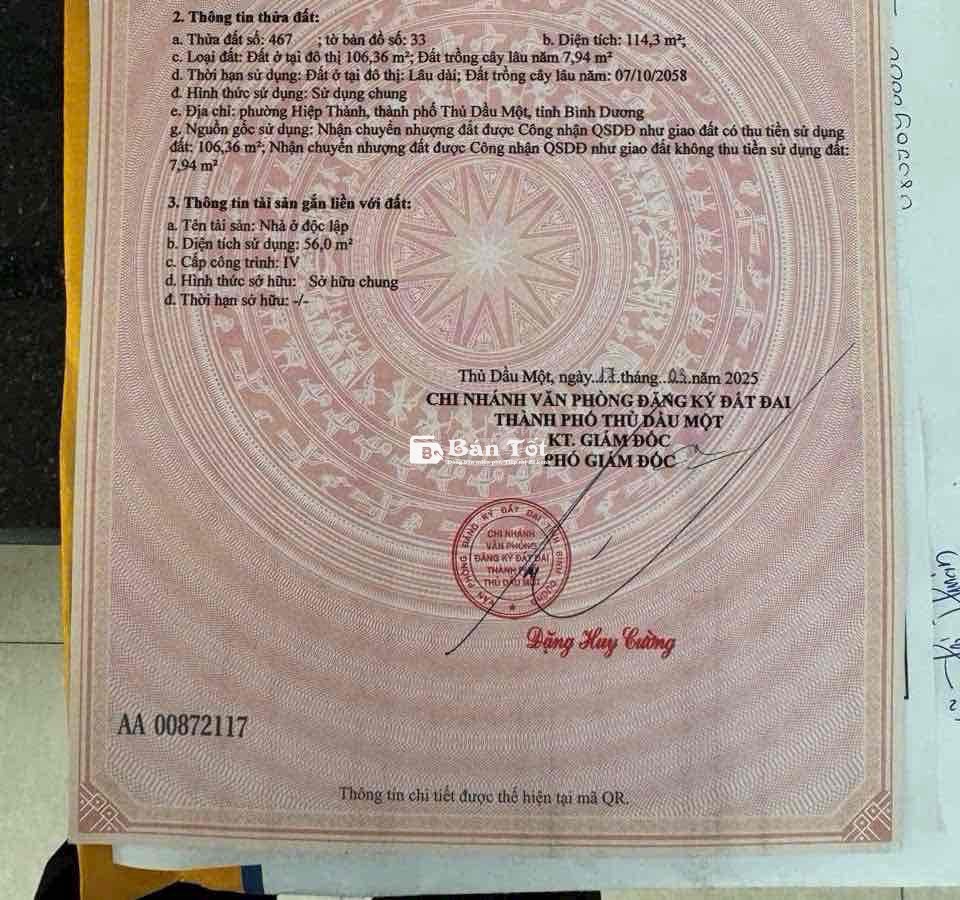 2. Thông tin thửa đất:
a. Thửa đất số: 467 ; tờ bản đồ số: 33 b. Diện tích: 114,3 m²;
c. Loại đất: Đất ở tại đô thị 106,36 m²; Đất trồng cây lâu năm 7,94 m²
d. Thời hạn sử dụng: Đất ở tại đô thị: Lâu dài; Đất trồng cây lâu năm: 07/10/2058
đ. Hình thức sử dụng: Sử dụng chung
e. Địa chỉ: phường Hiệp Thành, thành phố Thủ Dầu Một, tỉnh Bình Dương
g. Nguồn gốc sử dụng: Nhận chuyển nhượng đất được Công nhận QSDĐ như giao đất có thu tiền sử dụng
đất: 106,36 m²; Nhận chuyển nhượng đất được Công nhận QSDĐ như giao đất không thu tiền sử dụng đất:
7,94 m²
3. Thông tin tài sản gắn liền với đất:
a. Tên tài sản: Nhà ở độc lập
b. Diện tích sử dụng: 56,0 m²
c. Cấp công trình: IV
d. Hình thức sở hữu: Sở hữu chung
đ. Thời hạn sở hữu: -/-
Thủ Dầu Một, ngày..17.tháng..03..năm 2025
CHI NHÁNH VĂN PHÒNG ĐĂNG KÝ ĐẤT ĐAI
THÀNH PHỐ THỦ DẦU MỘT
KT. GIÁM ĐỐC
PHÓ GIÁM ĐỐC
Bán Tốt
VĂN PHÒNG ĐĂNG KÝ ĐẤT ĐAI TỈNH BÌNH DƯƠNG
CHI NHÁNH
VĂN PHÒNG
ĐĂNG KÝ ĐẤT ĐAI
THÀNH PHỐ
THỦ DẦU MỘT
Đặng Huy Cường
AA 00872117
Thông tin chi tiết được thể hiện tại mã QR.